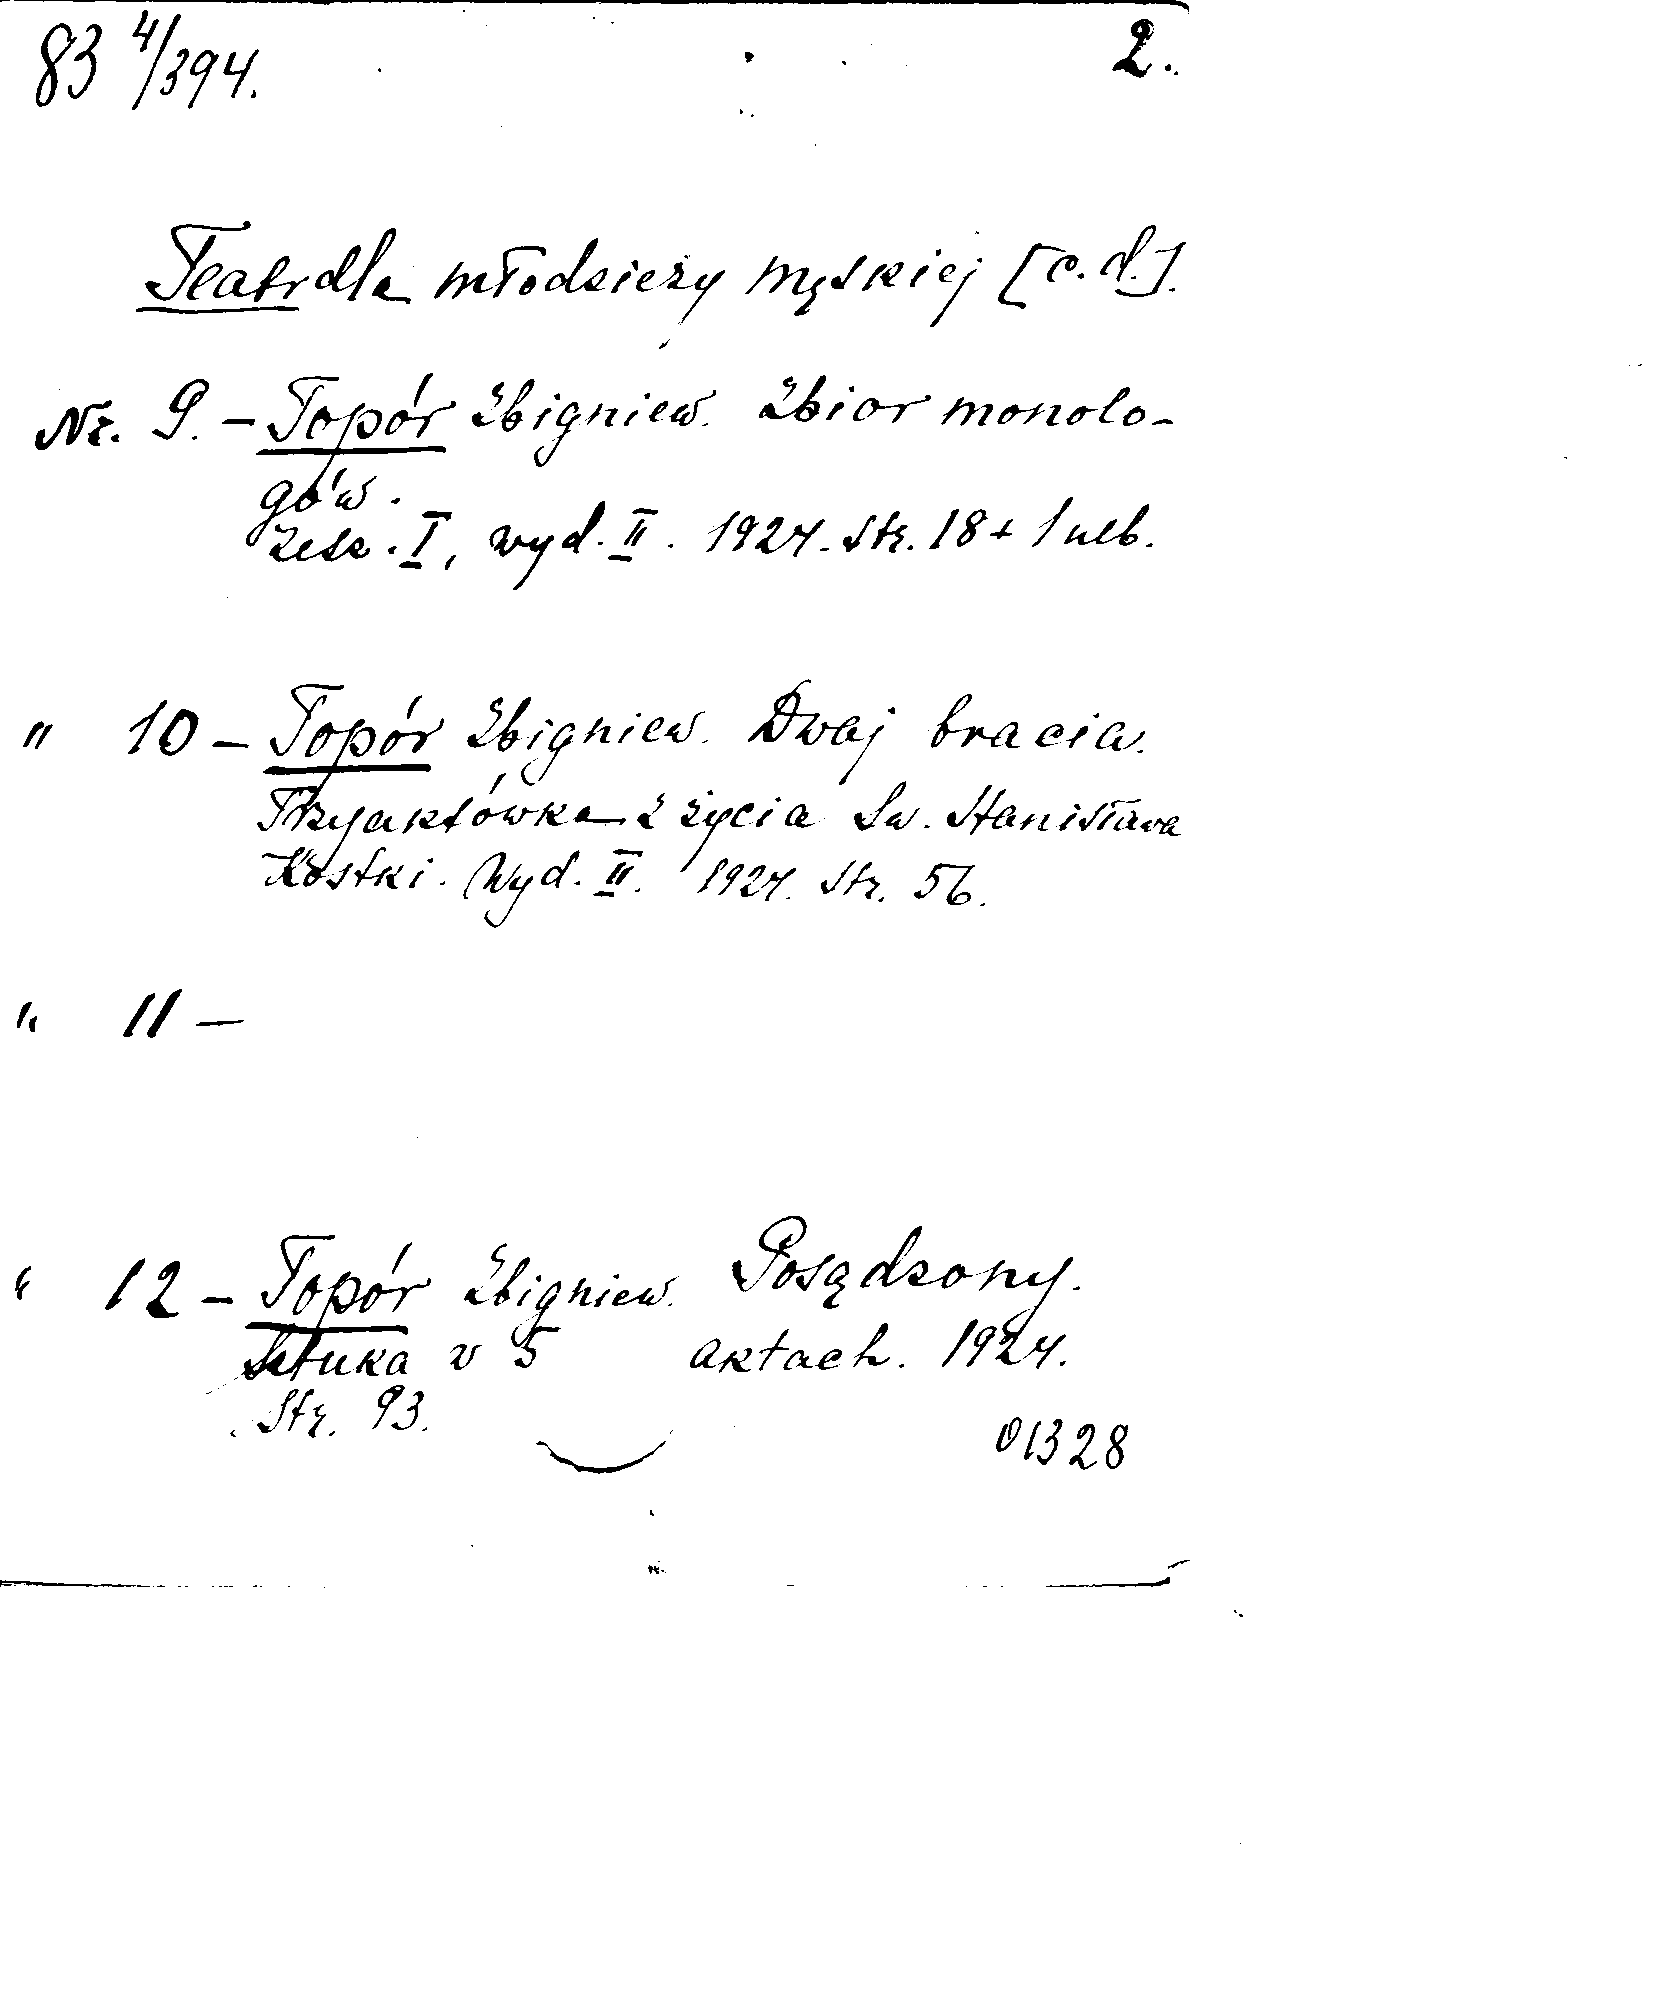 83 4/394. 2.
Teatr dla młodzieży męskiej [c.d.].
Nr. 9. - Topór Zbigniew. Zbior monolo-
gów.
Zesz. I, wyd. II. 1924. Str. 18 + 1 nlb.
" 10 - Topór Zbigniew. Dwaj bracia.
Trzyaktówka z życia Św. Stanisława
Kostki. Wyd. II. 1924. Str. 56.
" 11 -
" 12 - Topór Zbigniew. Posądzony.
Sztuka w 5 aktach. 1924.
Str. 93.
01328